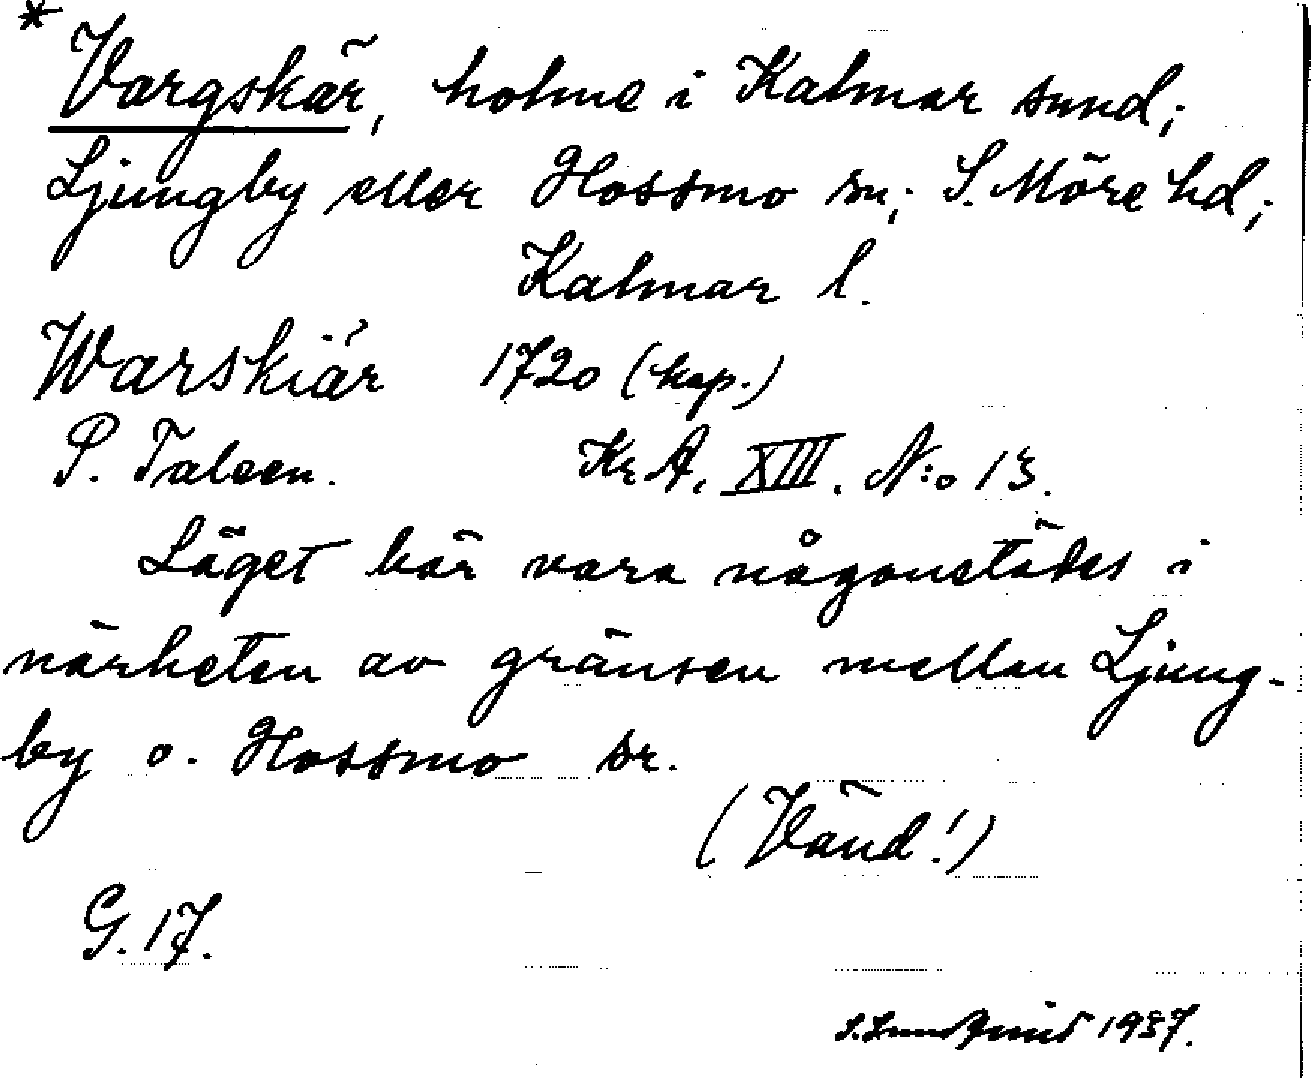 * Vargskär, holme i Kalmar sund;
Ljungby eller Hossmo sn; S. Möre hd;
Kalmar l.
Warskiär 1720 (kop.)
P. Taleen. Kr A. XIII. N:o 13.
Läget bör vara någonstädes i
närheten av gränsen mellan Ljung-
by o. Hossmo sr.
(Vänd!)
G. 17.
1937.